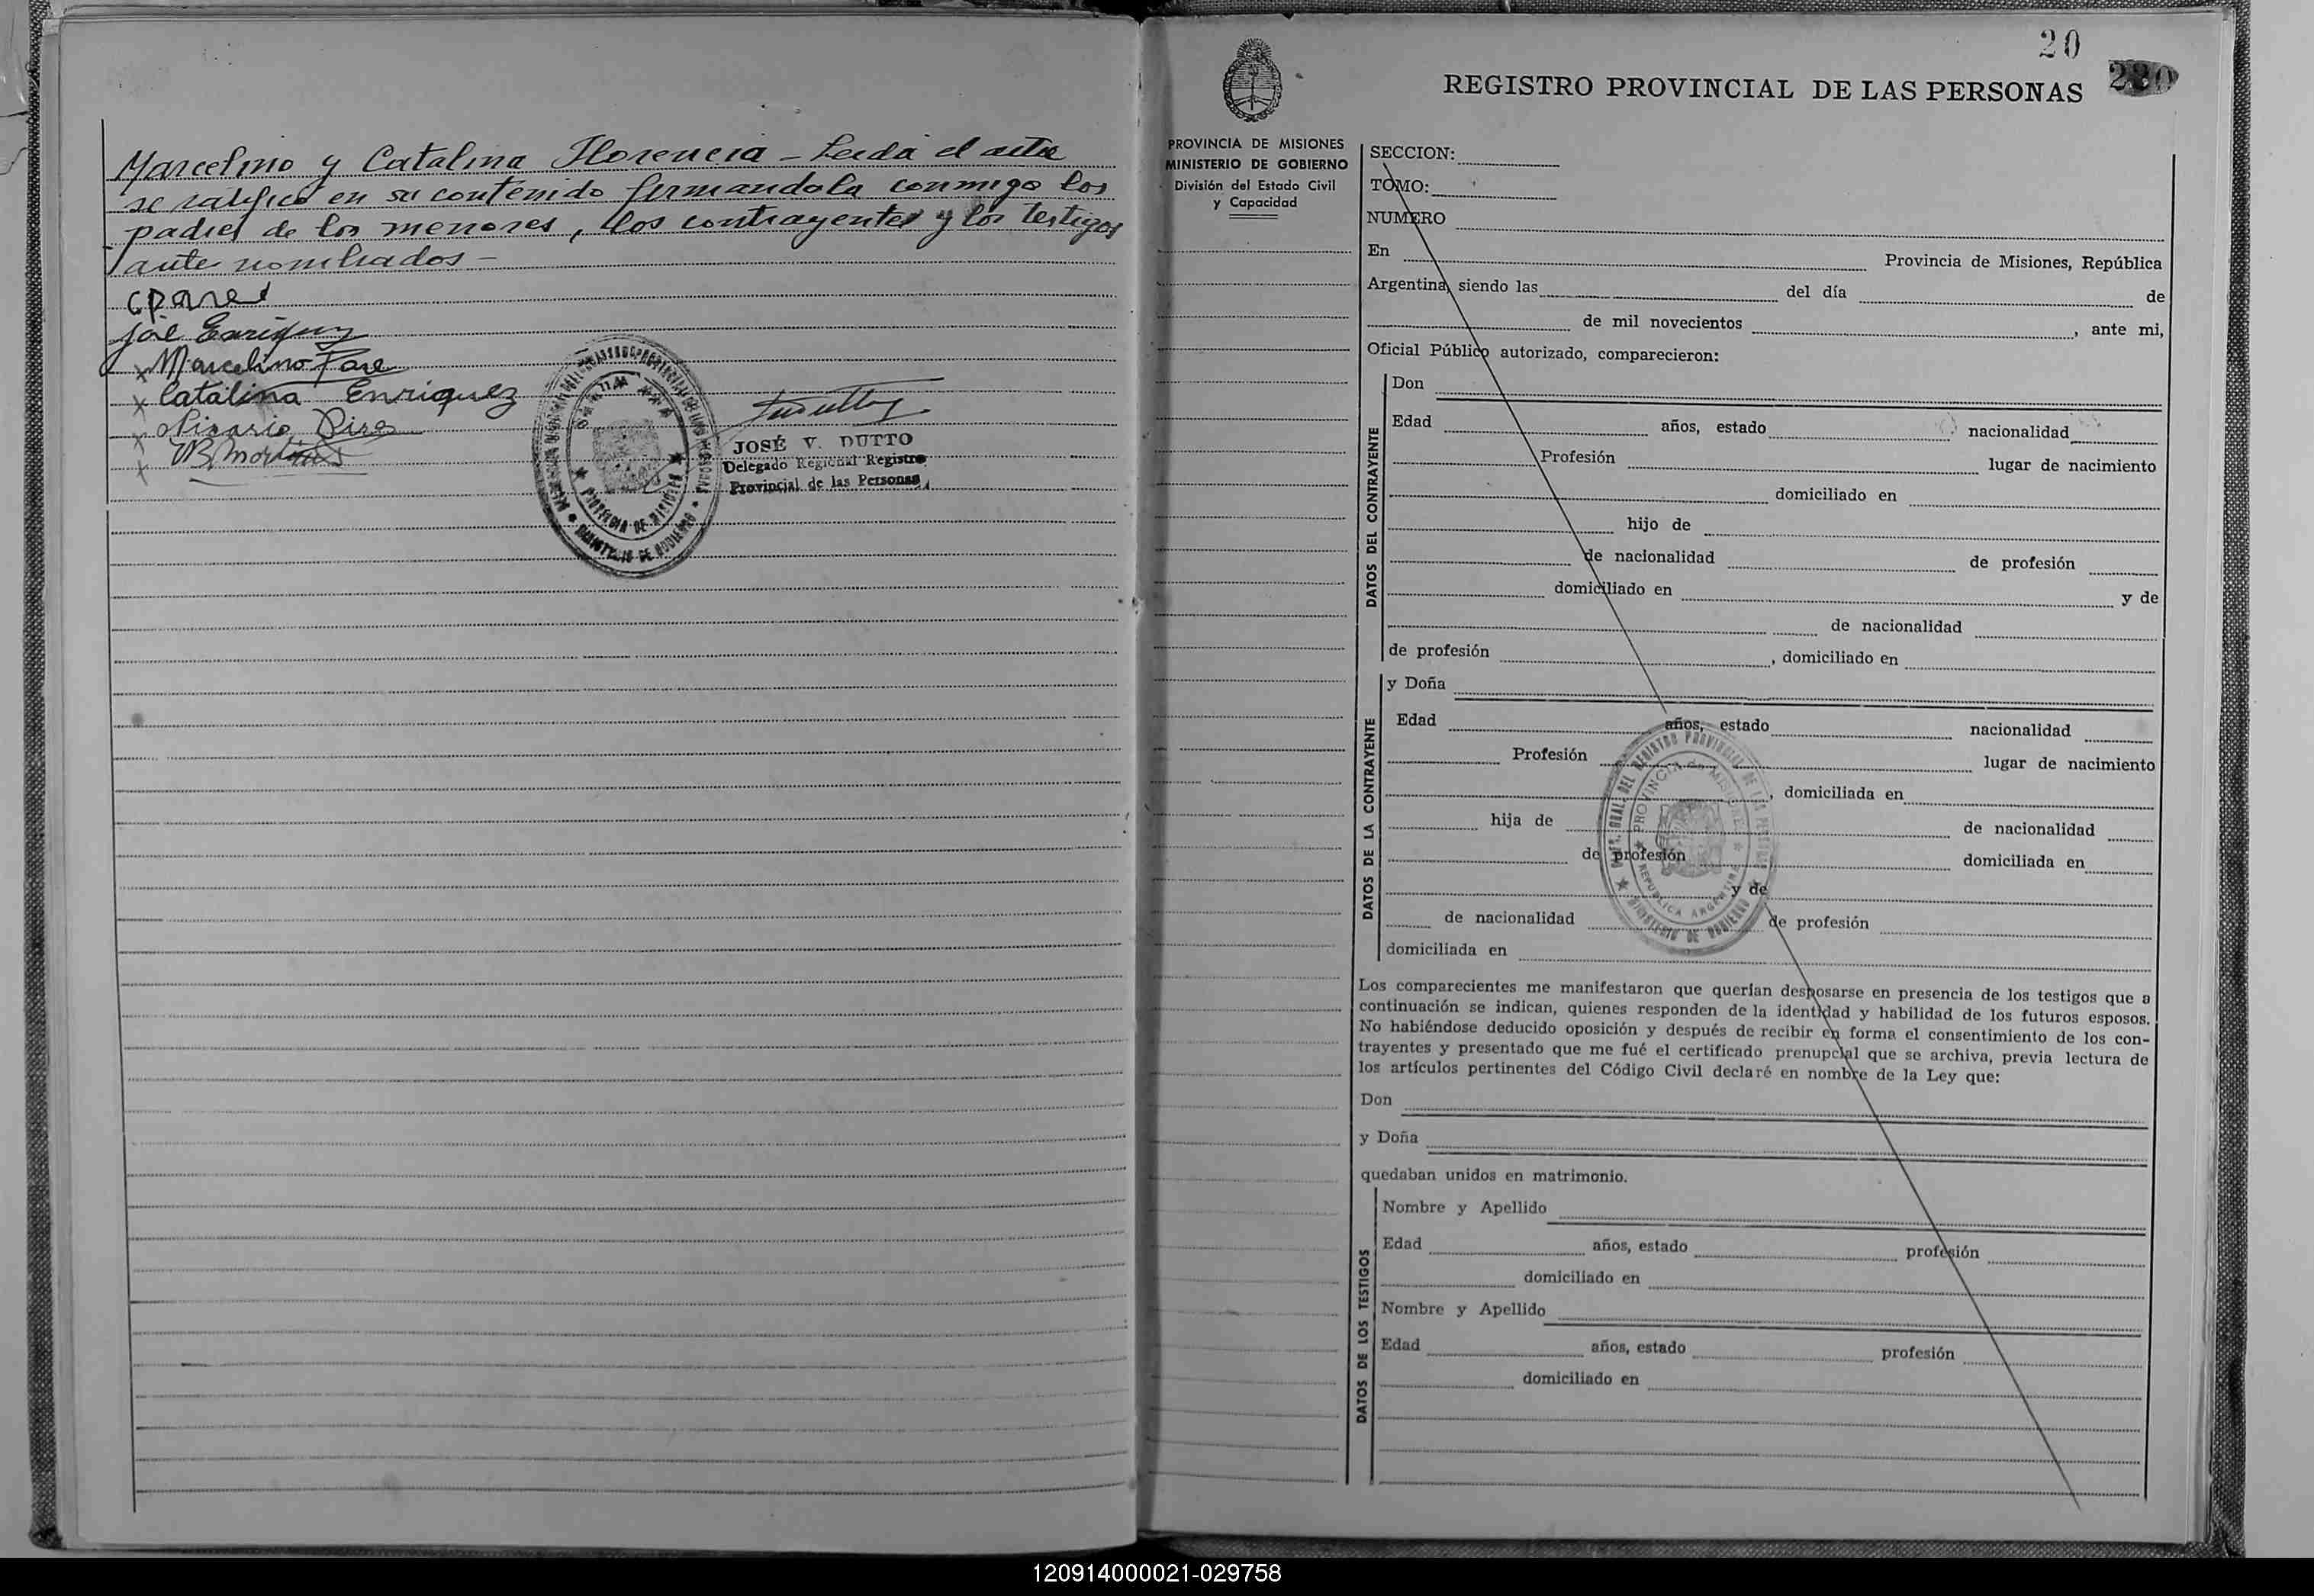 Marcelino y Catalina Florencia - Leída el acta
se ratificó en su contenido firmandola conmigo los
padres de los menores, los contrayentes y los testigos
ante nombrados -
José Enriquez
x Marcelino Pare
x Catalina Enriquez
x
x
JOSÉ V. DUTTO
Delegado Regional Registro
Provincial de las Personas
PROVINCIA DE MISIONES
MINISTERIO DE GOBIERNO
20
REGISTRO PROVINCIAL DE LAS PERSONAS
280
PROVINCIA DE MISIONES
MINISTERIO DE GOBIERNO
División del Estado Civil
y Capacidad
SECCION:
TOMO:
NUMERO
En Provincia de Misiones, República
Argentina, siendo las del día de
de mil novecientos , ante mi,
Oficial Público autorizado, comparecieron:
DATOS DEL CONTRAYENTE
Don
Edad años, estado nacionalidad
Profesión lugar de nacimiento
domiciliado en
hijo de
de nacionalidad de profesión
domiciliado en y de
de nacionalidad
de profesión , domiciliado en
DATOS DE LA CONTRAYENTE
y Doña
Edad años, estado nacionalidad
Profesión lugar de nacimiento
, domiciliada en
hija de de nacionalidad
de profesión domiciliada en
y de
de nacionalidad de profesión
domiciliada en
DEL REGISTRO PROVINCIAL DE LAS PERSONAS
PROVINCIA DE MISIONES
REPUBLICA ARGENTINA
MINISTERIO DE GOBIERNO
Los comparecientes me manifestaron que querían desposarse en presencia de los testigos que a
continuación se indican, quienes responden de la identidad y habilidad de los futuros esposos.
No habiéndose deducido oposición y después de recibir en forma el consentimiento de los con-
trayentes y presentado que me fué el certificado prenupcial que se archiva, previa lectura de
los artículos pertinentes del Código Civil declaré en nombre de la Ley que:
Don
y Doña
quedaban unidos en matrimonio.
DATOS DE LOS TESTIGOS
Nombre y Apellido
Edad años, estado profesión
domiciliado en
Nombre y Apellido
Edad años, estado profesión
domiciliado en
120914000021-029758